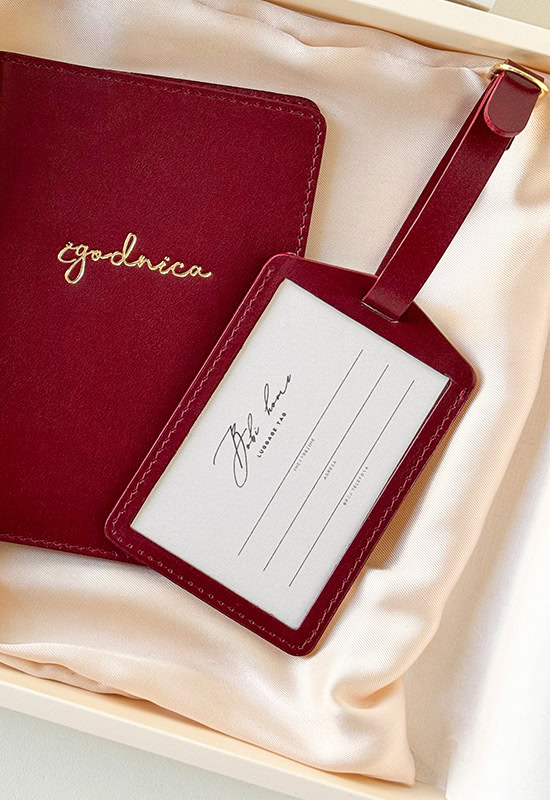 zgodnica
Bobi home
LUGGAGE TAG
IME I PREZIME
ADRESA
BROJ TELEFONA